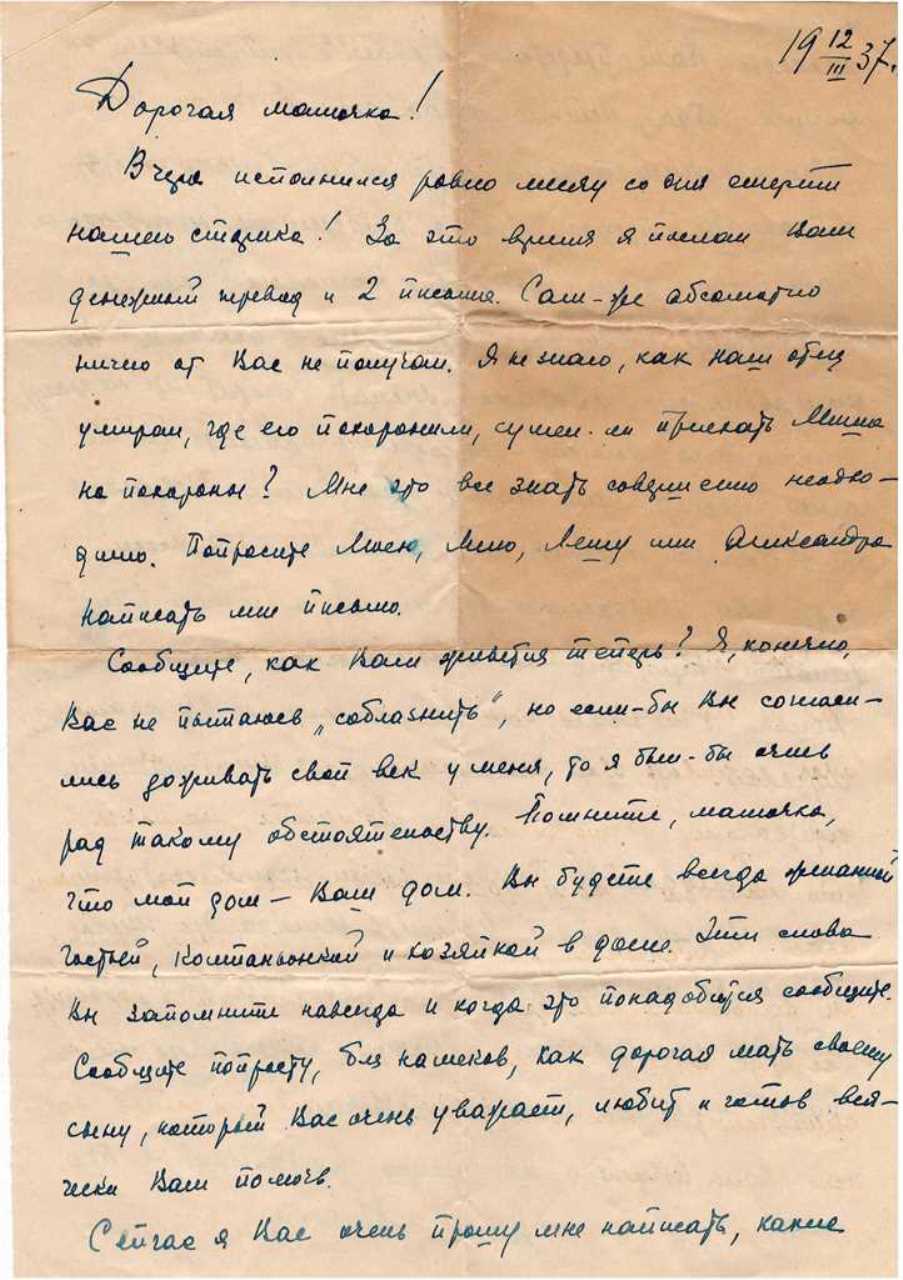 19 12/III 37.
Дорогая мамочка!
Вчера исполнился ровно месяц со дня смерти
нашего старика! За это время я послал Вам
денежный перевод и 2 письма. Сам-же абсолютно
ничего от Вас не получал. Я не знаю, как наш отец
умирал, где его похоронили, сумел-ли приехать Миша
на похороны? Мне это все знать совершенно необхо-
димо. Попросите Люсю, Лешу или Александра
написать мне письмо.
Сообщите, как Вам живется теперь? Я, конечно,
Вас не пытаюсь „соблазнить", но если-бы Вы согласи-
лись доживать свой век у меня, то я был-бы очень
рад такому обстоятельству. Помните, мамочка,
что мой дом — Ваш дом. Вы будете всегда желанной
гостьей, компаньонкой и хозяйкой в доме. Эти слова
Вы запомните навсегда и когда это понадобится сообщите.
Сообщите попросту, без намеков, как дорогая мать своему
сыну, который Вас очень уважает, любит и готов вся-
чески Вам помочь.
Сейчас я Вас очень прошу мне написать, какие